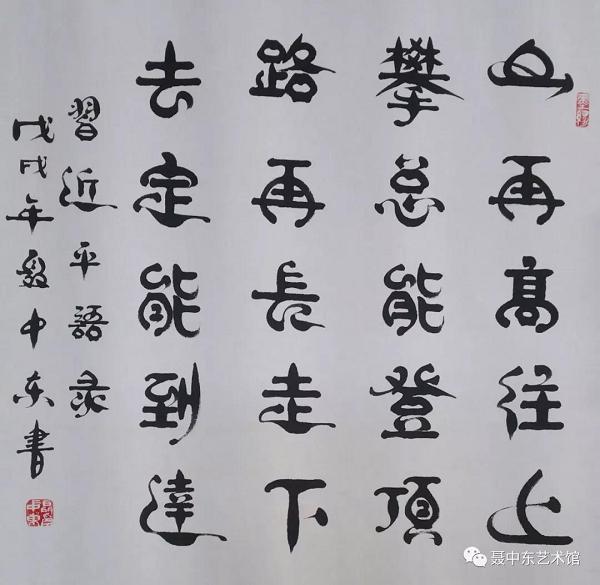 山再高往上
攀总能登頂
路再長走下
去定能到達
習近平語录
戊戌年聂中东書
聂中东艺术馆